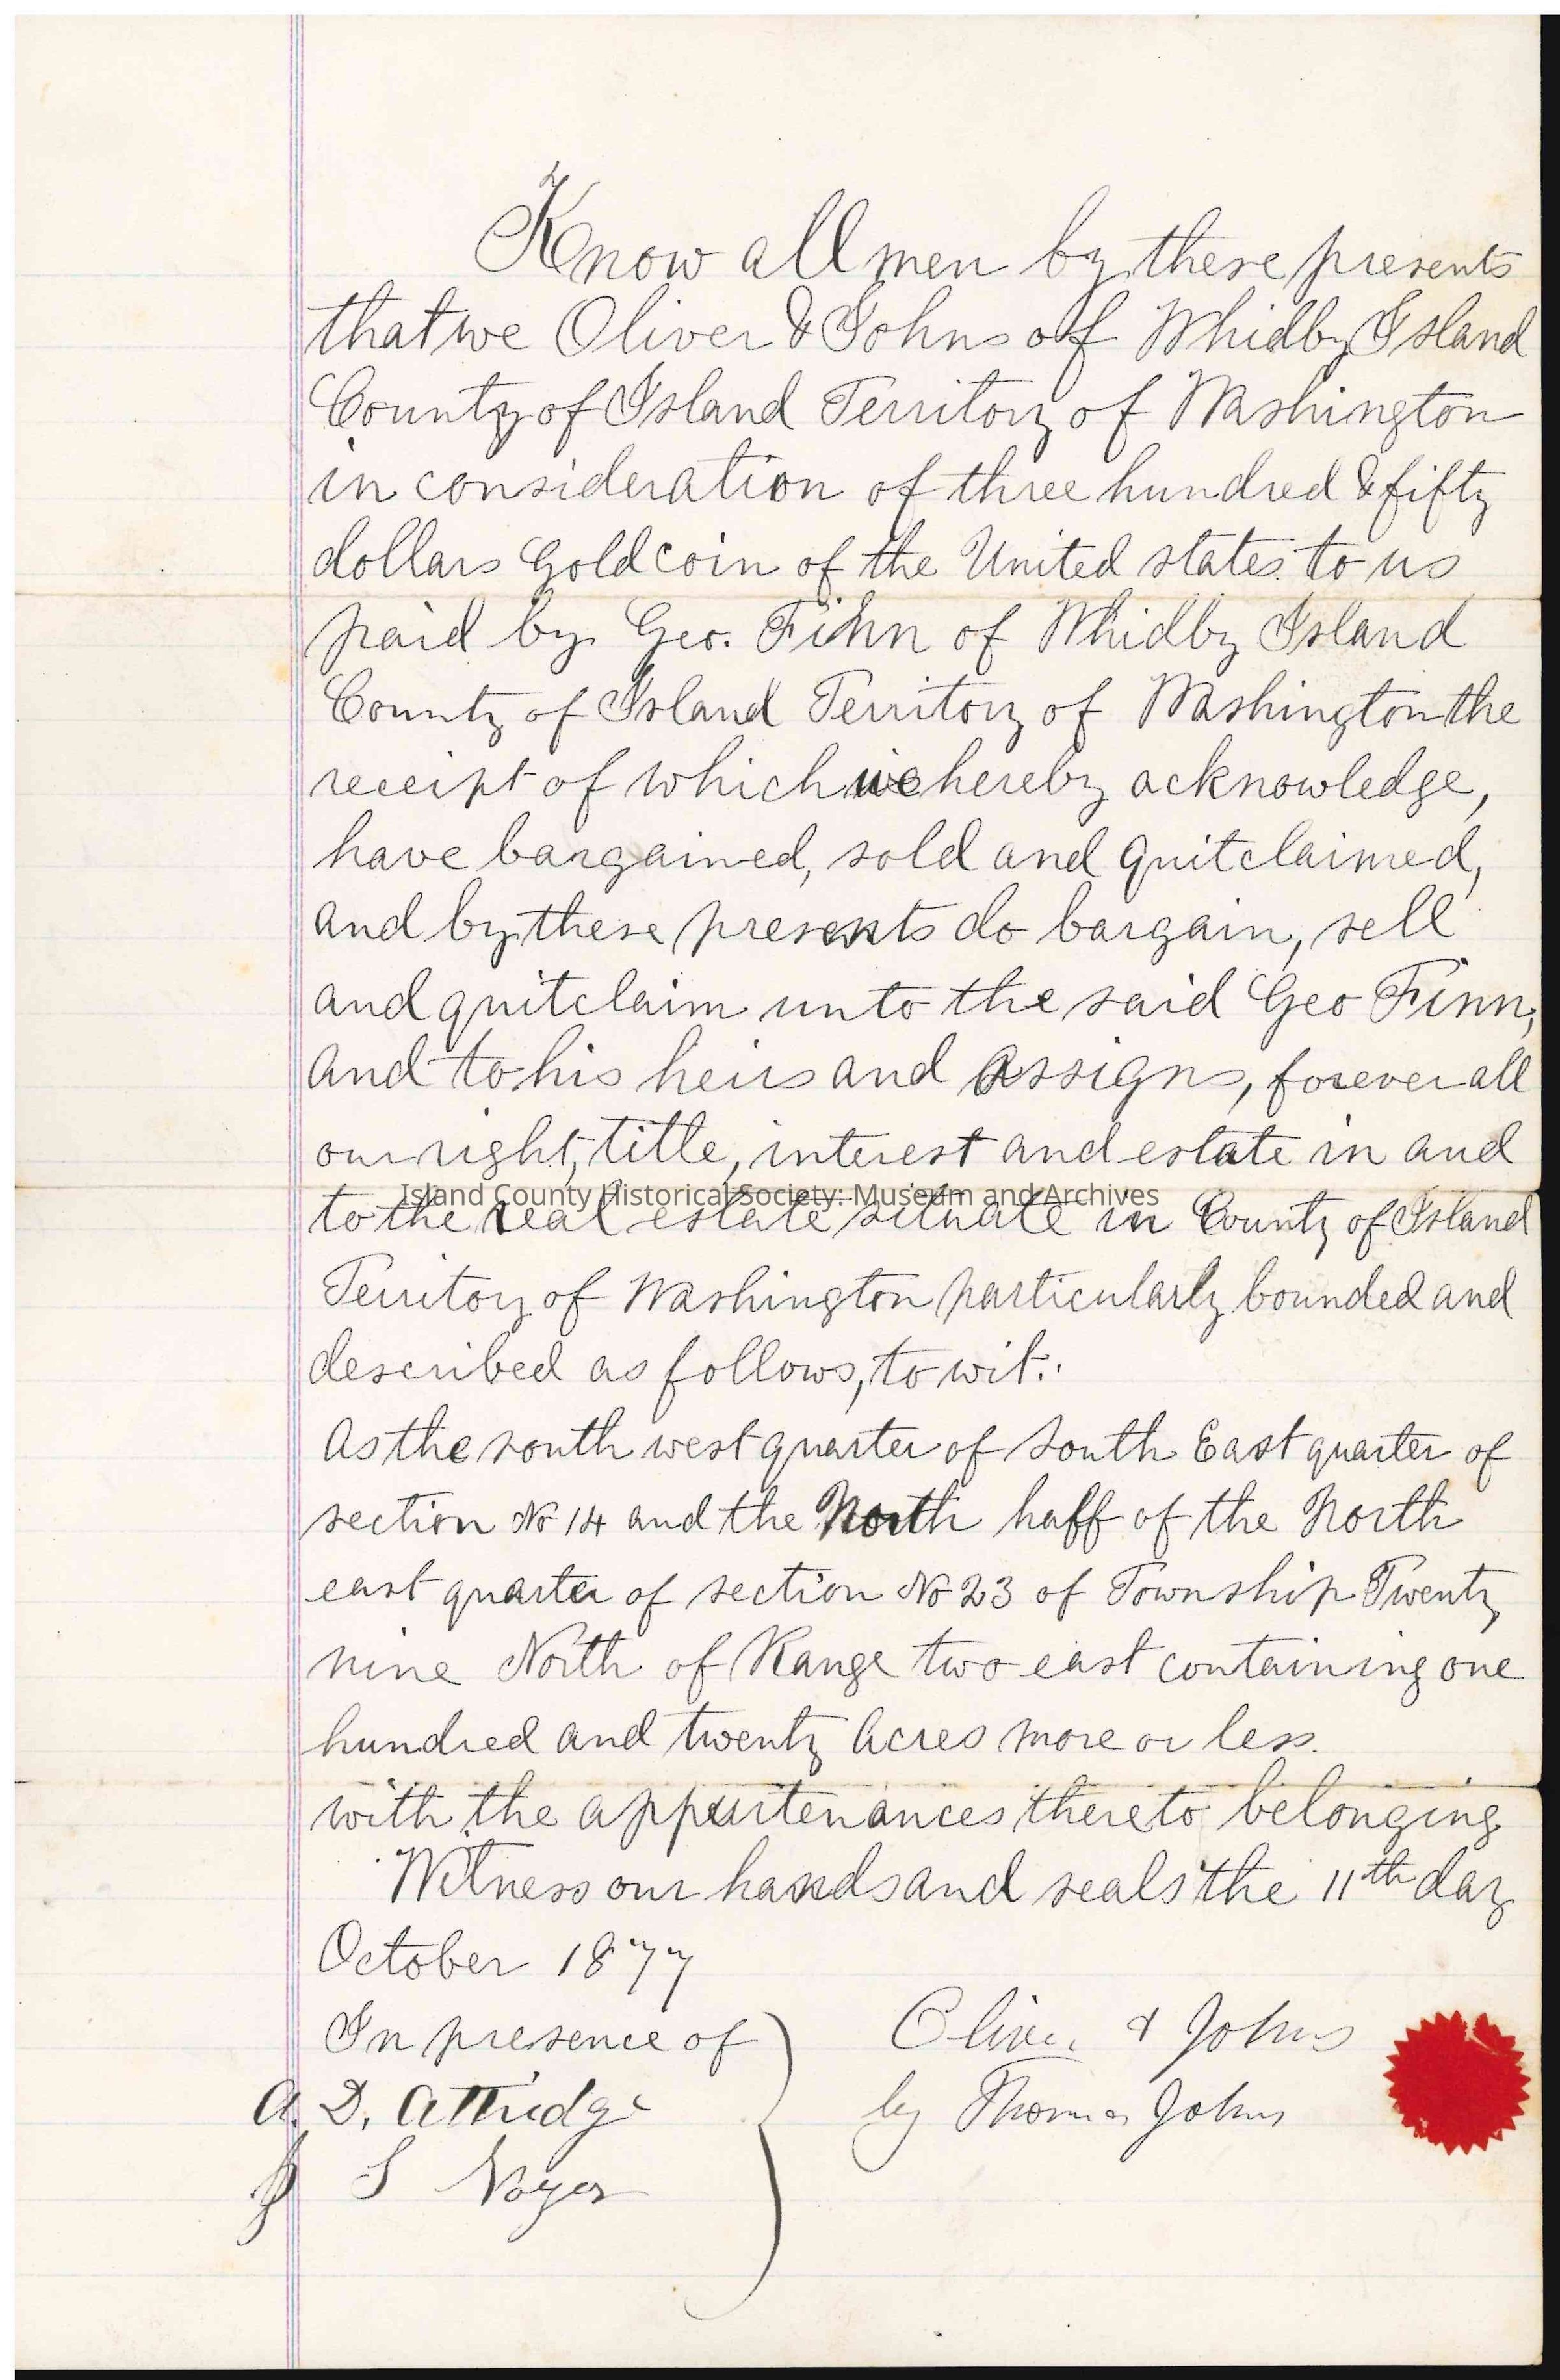 Know all men by these presents
that we Oliver & Johns of Whidby Island
County of Island Territory of Washington
in consideration of three hundred & fifty
dollars Gold coin of the United states to us
paid by Geo. Finn of Whidby Island
County of Island Territory of Washington the
receipt of which we hereby acknowledge,
have bargained, sold and quitclaimed,
and by these presents do bargain, sell
and quitclaim unto the said Geo Finn,
and to his heirs and assigns, forever all
our right, title, interest and estate in and
Island County Historical Society: Museum and Archives
to the real estate situate in County of Island
Territory of Washington particularly bounded and
described as follows, to wit:
As the south west quarter of South East quarter of
section No 14 and the North haff of the North
east quarter of section No 23 of Township Twenty
nine North of Range two east containing one
hundred and twenty acres more or less.
with the appurtenances thereto belonging
Witness our hands and seals the 11th day
October 1877
In presence of
Oliver & Johns
A. D. Attridge
by Thomas Johns
J S Noyes